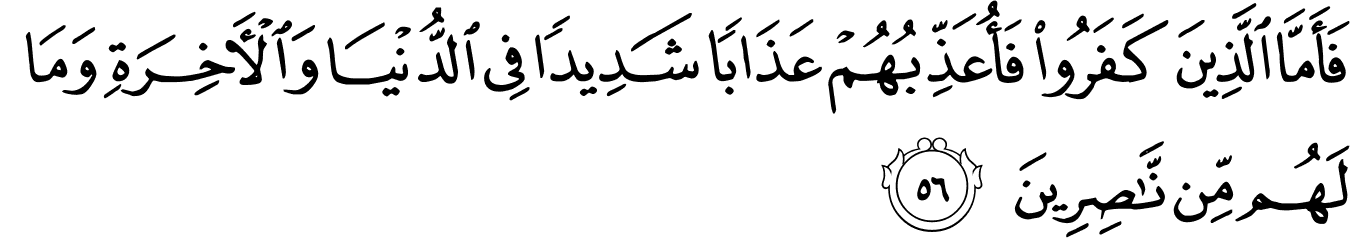 فَأَمَّا ٱلَّذِينَ كَفَرُوا۟ فَأُعَذِّبُهُمْ عَذَابًا شَدِيدًا فِى ٱلدُّنْيَا وَٱلْأَخِرَةِ وَمَا
لَهُم مِّن نَّـٰصِرِينَ ٥٦